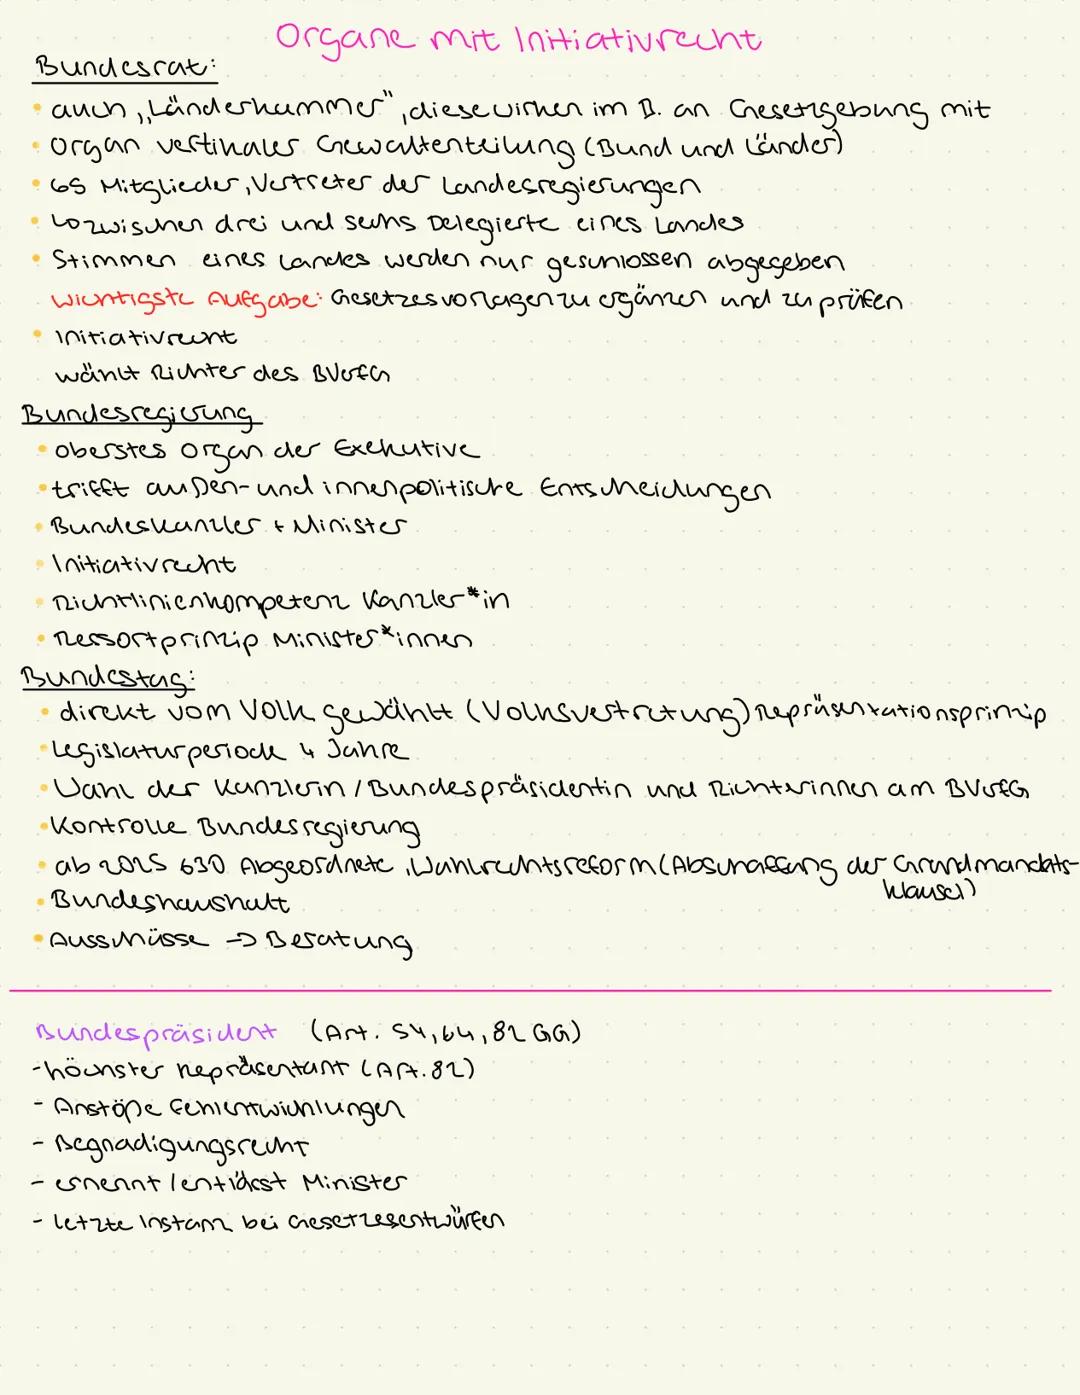 Organe mit Initiativrecht
Bundesrat:
• auch „Länderkammer", diese wirken im B. an Gesetzgebung mit
• Organ vertikaler Gewaltenteilung (Bund und Länder)
• 69 Mitglieder, Vertreter der Landesregierungen
• ↳ zwischen drei und sechs Delegierte eines Landes
• Stimmen eines Landes werden nur geschlossen abgegeben
wichtigste Aufgabe: Gesetzesvorlagen zu ergänzen und zu prüfen
• Initiativrecht
wählt Richter des BVerfG
Bundesregierung
• oberstes Organ der Exekutive
• trifft außen- und innenpolitische Entscheidungen
• Bundeskanzler + Minister
• Initiativrecht
• Richtlinienkompetenz Kanzler*in
• Ressortprinzip Minister*innen
Bundestag:
• direkt vom Volk gewählt (Volksvertretung) Repräsentationsprinzip
• Legislaturperiode 4 Jahre
• Wahl der Kanzlerin / Bundespräsidentin und Richterinnen am BVerfG
• Kontrolle Bundesregierung
• ab 2025 630 Abgeordnete, Wahlrechtsreform (Abschaffung der Grundmandats-
klausel)
• Bundeshaushalt
• Ausschüsse → Beratung
Bundespräsident (Art. 54, 64, 82 GG)
- höchster Repräsentant (Art. 82)
- Anstöße Fehlentwicklungen
- Begnadigungsrecht
- ernennt / entlässt Minister
- letzte Instanz bei Gesetzesentwürfen